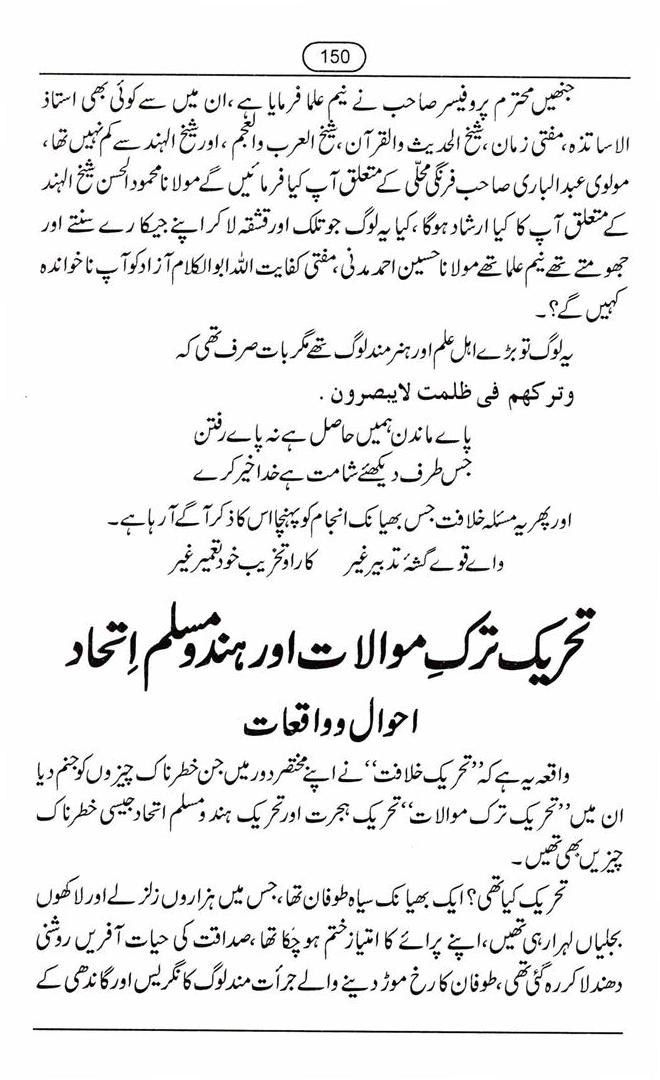 150
جنھیں محترم پروفیسر صاحب نے نیم علما فرمایا ہے ،ان میں سے کوئی بھی استاذ
الاساتذہ،مفتی زمان ،شیخ الحدیث والقرآن ،شیخ العرب والعجم ،اور شیخ الہند سے کم نہیں تھا،
مولوی عبدالباری صاحب فرنگی محلّی کے متعلق آپ کیا فرمائیں گے مولانا محمود الحسن شیخ الہند
کے متعلق آپ کا کیا ارشاد ہوگا ،کیا یہ لوگ جو تلک اور قشقہ لا کر اپنے جیکارے سنتے اور
جھومتے تھے نیم علما تھے مولانا حسین احمد مدنی ،مفتی کفایت اللہ ابوالکلام آزاد کو آپ ناخواندہ
کہیں گے؟۔
یہ لوگ تو بڑے اہل علم اور ہنر مند لوگ تھے مگر بات صرف تھی کہ
وترکھم فی ظلمت لایبصرون .
پاے ماندن ہمیں حاصل ہے نہ پاے رفتن
جس طرف دیکھئے شامت ہے خدا خیر کرے
اور پھر یہ مسئلہ خلافت جس بھیانک انجام کو پہنچا اس کا ذکر آگے آرہا ہے۔
واے قوے گشۂ تدبیر غیر کار او تخریب خود تعمیر غیر
تحریک ترکِ موالات اور ہندو مسلم اِتحاد
احوال و واقعات
واقعہ یہ ہے کہ ’’تحریک خلافت‘‘ نے اپنے مختصر دور میں جن خطرناک چیزوں کو جنم دیا
ان میں ’’تحریک ترک موالات‘‘ تحریک ہجرت اور تحریک ہندو مسلم اتحاد جیسی خطرناک
چیزیں بھی تھیں۔
تحریک کیا تھی؟ ایک بھیانک سیاہ طوفان تھا ،جس میں ہزاروں زلزلے اور لاکھوں
بجلیاں لہرارہی تھیں ،اپنے پرائے کا امتیاز ختم ہو چکا تھا ،صداقت کی حیات آفریں روشنی
دھندلا کر رہ گئی تھی ،طوفان کا رخ موڑ دینے والے جرأت مند لوگ کانگریس اور گاندھی کے